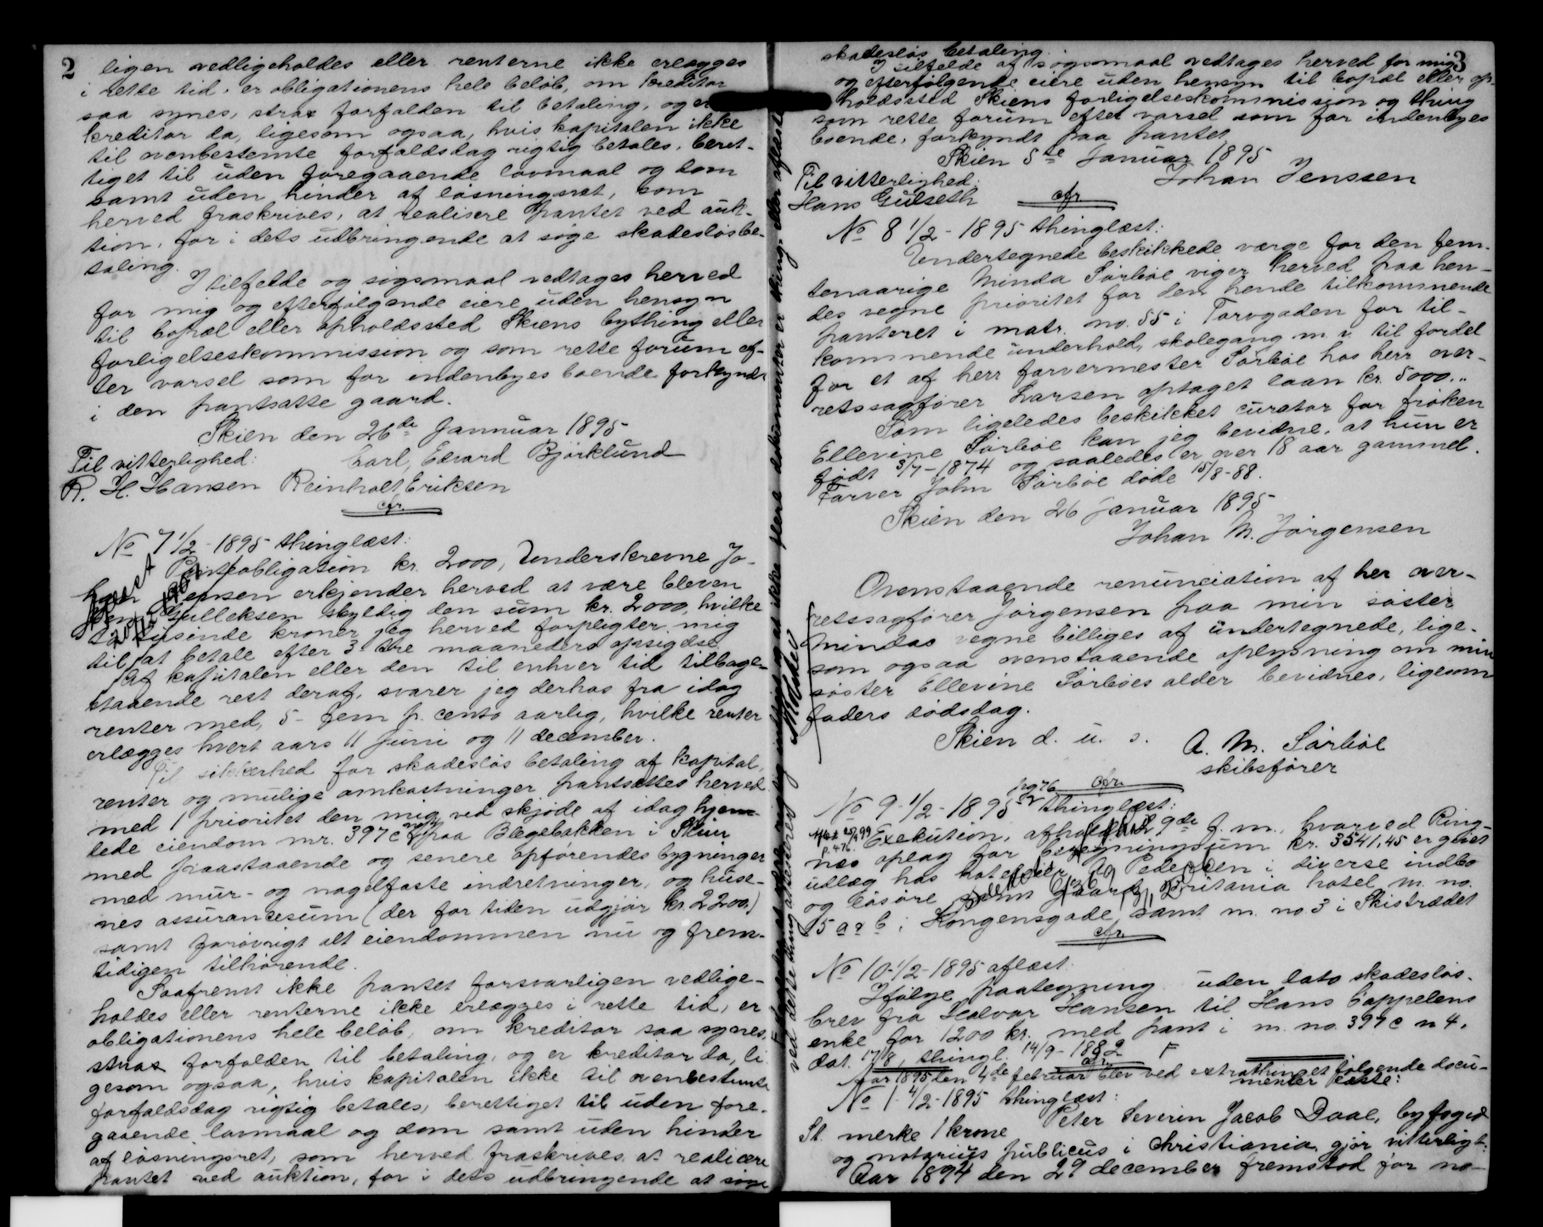 2
ligen vedligeholdes eller renterne ikke erlægges
i rette tid, er obligationens hele beløb, om kreditor
saa synes, strax forfalden til betaling, og er
kreditor da, ligesom ogsaa, hvis kapitalen ikke
til ovenbestemte forfaldsdag rigtig betales, beret-
tiget til uden foregaaende lovmaal og dom
samt uden hinder af løsningsret, som
herved fraskrives, at realisere pantet ved auk-
tion, for i dets udbringende at søge skadesløsbe-
taling.
I tilfelde og søgsmaal vedtages herved
for mig og efterfølgende eiere uden hensyn
til bopæl eller opholdssted Skiens bything eller
forligelseskommission og som rette forum ef-
ter varsel som for indenbyes boende forkyndt
i den pantsatte gaard.
Skien den 26de Januuar 1895
Til vitterlighed: Carl Edvard Bjørklund
R. H. Hansen Reinholt Eriksen
cfr.
No 7 1/2-1895 thinglæst:
Pantobligation kr. 2000, Underskrevne Jo-
han Jenssen erkjender herved at være bleven
Gulleksen skyldig den sum kr. 2000, hvilke
tusinde kroner jeg herved forpligter mig
til at betale efter 3 tre maaneders opsigelse
Af kapitalen eller den til enhver tid tilbage-
staaende rest deraf, svarer jeg derhos fra idag
renter med, 5 - fem p. cento aarlig, hvilke renter
erlægges hvert aars 11 juni og 11 december.
Til sikkerhed for skadesløs betaling af kapital,
renter og mulige omkostninger pantsættes herved
med 1 prioritet den mig ved skjøde af idag hjem-
lede eiendom nr. 397c paa Bøgebakken i Skien
med paastaaende og senere opførendes bygninger
med mur- og nagelfaste indretninger, og huse-
nes assurancesum (der for tiden udgjør kr. 2200.)
samt forøvrigt alt eiendommen nu og frem-
tidigen tilhørende.
Saafremt ikke pantet forsvarligen vedlige-
holdes eller renterne ikke erlægges i rette tid, er
obligationens hele beløb, om kreditor saa synes,
strax forfalden til betaling, og er kreditor da, li
gesom ogsaa, hvis kapitalen ikke til ovenbestemte
forfaldsdag rigtig betales, berettiget til uden fore-
gaaende lovmaal og dom samt uden hinder
af løsningsret, som herved fraskrives at realisere
pantet ved auktion, for i dets udbringende at søge
3
skadesløs betaling.
I tilfelde af søgsmaal vedtages herved for mig
og efterfølgende eiere uden hensyn til bopæl eller op-
holdssted Skiens forligelseskommission og thing
som rette forum efter varsel som for indenbyes
boende, forkyndt paa pantet
Skien 5te Januar 1895
Til vitterlighed: Johan Jenssen
Hans Gulseth
cfr
No 8 1/2-1895 thinglæst:
Undertegnede beskikkede værge for den fem-
tenaarige Minda Sørbøe viger herved paa hen-
des vegne prioritet for den hende tilkommende
panteret i matr. no. 55 i Torvgaden for til-
kommende underhold, skolegang m. v. til fordel
for et af herr farvermester Sørbøe hos herr over-
retssagfører Larsen optaget laan kr. 5000..
Som ligeledes beskikket curator for frøken
Ellevine Sørbøe kan jeg bevidne, at hun er
født 3/7-1874 og saaledes er over 18 aar gammel.
Farver John Sørbøe døde 15/8-88.
Skien den 26 januar 1895
Johan M. Jørgensen
Ovenstaaende renunciation af her over-
retssagfører Jørgensen paa min søster
Mindas vegne billiges af undertegnede, lige-
som ogsaa ovenstaaende oplysning om min
søster Ellevine Sørbøes alder bevidnes, ligesom
faders dødsdag.
Skien d. u. s. A. M. Sørbøe
skibsfører
cfr.
No 9-1/2-1895 thinglæst:
Exekution, afholdt 9de f. m., hvorved Ring-
nes oplag for kr. 3541,45 er givet
udlæg hos Pedersen i diverse indbo
og løsøre samt Britania hotel m. no.
15 a & b i Kongensgade samt m. no 3 i Skistrædet
cfr.
No 10-1/2-1895 aflæst.
Ifølge paategning uden dato skadesløs-
brev fra Halvor Hansen til Hans Cappelens
enke for 1200 kr. med pant i m. no 397c n 4.
dat. 17/8, thingl. 14/9-1882
cfr.
Aar 1895 den 4de februar blev ved extrathinget følgende docu-
menter læste:
No 1-4/2-1895 thinglæst:
St. merke 1 krone Peter Severin Jacob Daae, byfoged
og notarius publicus i Christiania gjør vitterligt:
Aar 1894 den 29 december fremstod for no-